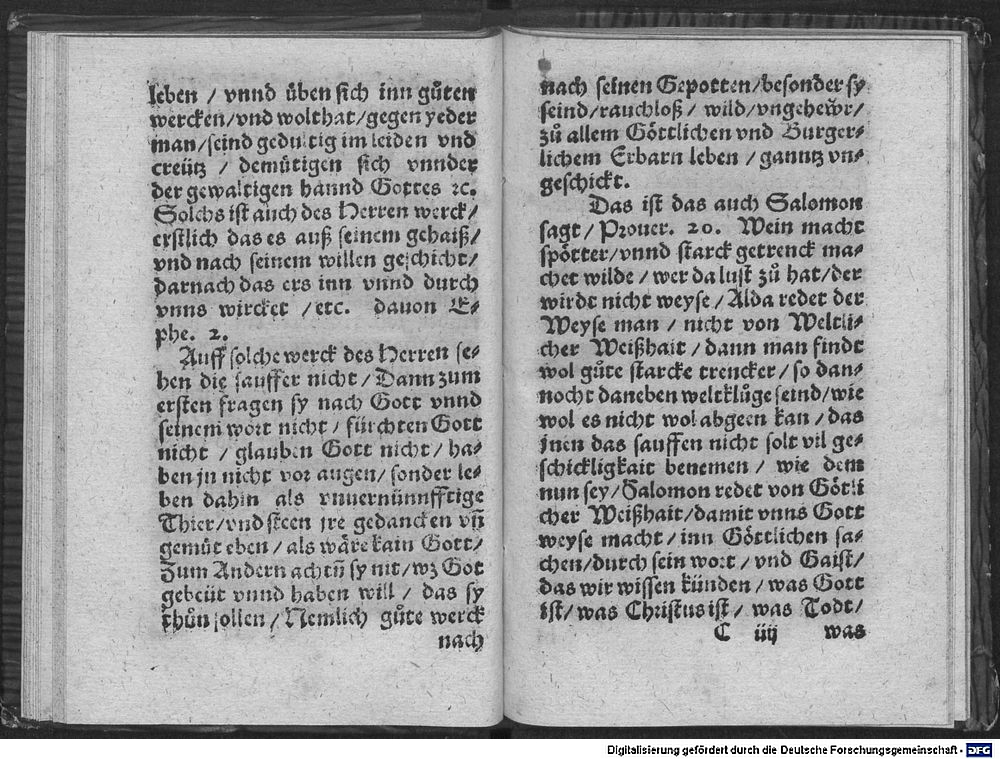 leben / vnnd üben sich inn gůten
wercken/vnd wolthat/gegen yeder
man/seind gedultig im leiden vnd
creütz / demütigen sich vnnder
der gewaltigen hannd Gottes ꝛc.
Solchs ist auch des Herren werck/
erstlich das es auß seinem gehaiß/
vnd nach seinem willen geschicht/
darnach das ers inn vnnd durch
vnns wircket /etc. dauon E⸗
phe. 2.
Auff solche werck des Herren se⸗
hen die sauffer nicht/Dann zum
ersten fragen sy nach Gott vnnd
seinem wort nicht / fürchten Gott
nicht / glauben Gott nicht/ ha⸗
ben jn nicht vor augen/sonder le⸗
ben dahin als vnuernünnfftige
Thier/vnd steen jre gedancken vñ
gemüt eben/als wäre kain Gott/
Zum Andern achtñ sy nit/wz Got
gebeüt vnnd haben will / das sy
thůn sollen/Nemlich gůte werck
nach
nach seinen Gepotten/besonder sy
seind/rauchloß / wild/vngehewr/
zů allem Göttlichen vnd Burger⸗
lichem Erbarn leben / ganntz vn⸗
geschickt.
Das ist das auch Salomon
sagt/ Prouer. 20. Wein macht
spötter/vnnd starck getrenck ma⸗
chet wilde/wer da lust zů hat/der
wirdt nicht weyse/Alda redet der
Weyse man / nicht von Weltli⸗
cher Weißhait/dann man findt
wol gůte starcke trencker/so dan⸗
nocht daneben weltklůge seind/wie
wol es nicht wol abgeen kan/das
jnen das sauffen nicht solt vil ge⸗
schickligkait benemen / wie dem
nun sey/Salomon redet von Götli
cher Weißhait/damit vnns Gott
weyse macht/inn Göttlichen sa⸗
chen/durch sein wort/ vnd Gaist/
das wir wissen künden/was Gott
ist/was Christus ist/ was Todt/
C iiij was
Digitalisierung gefördert durch die Deutsche Forschungsgemeinschaft - DFG